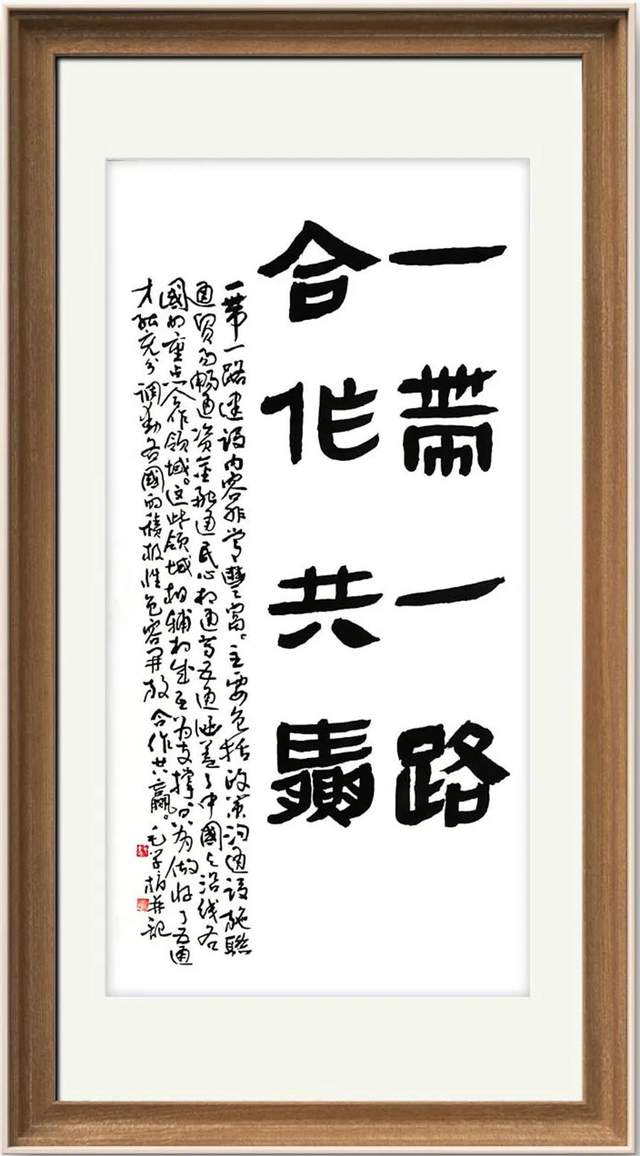 一帶一路
合作共贏
一帶一路建设内容非常豐富。主要包括政策沟通设施聯
通贸易畅通资金融通民心相通等五通涵盖了中國与沿线各
國的重点合作领域。这些领域相辅相成互为支撑。只有做好了五通
才能充分调動各國的積极性包容开放合作共赢。毛学并記